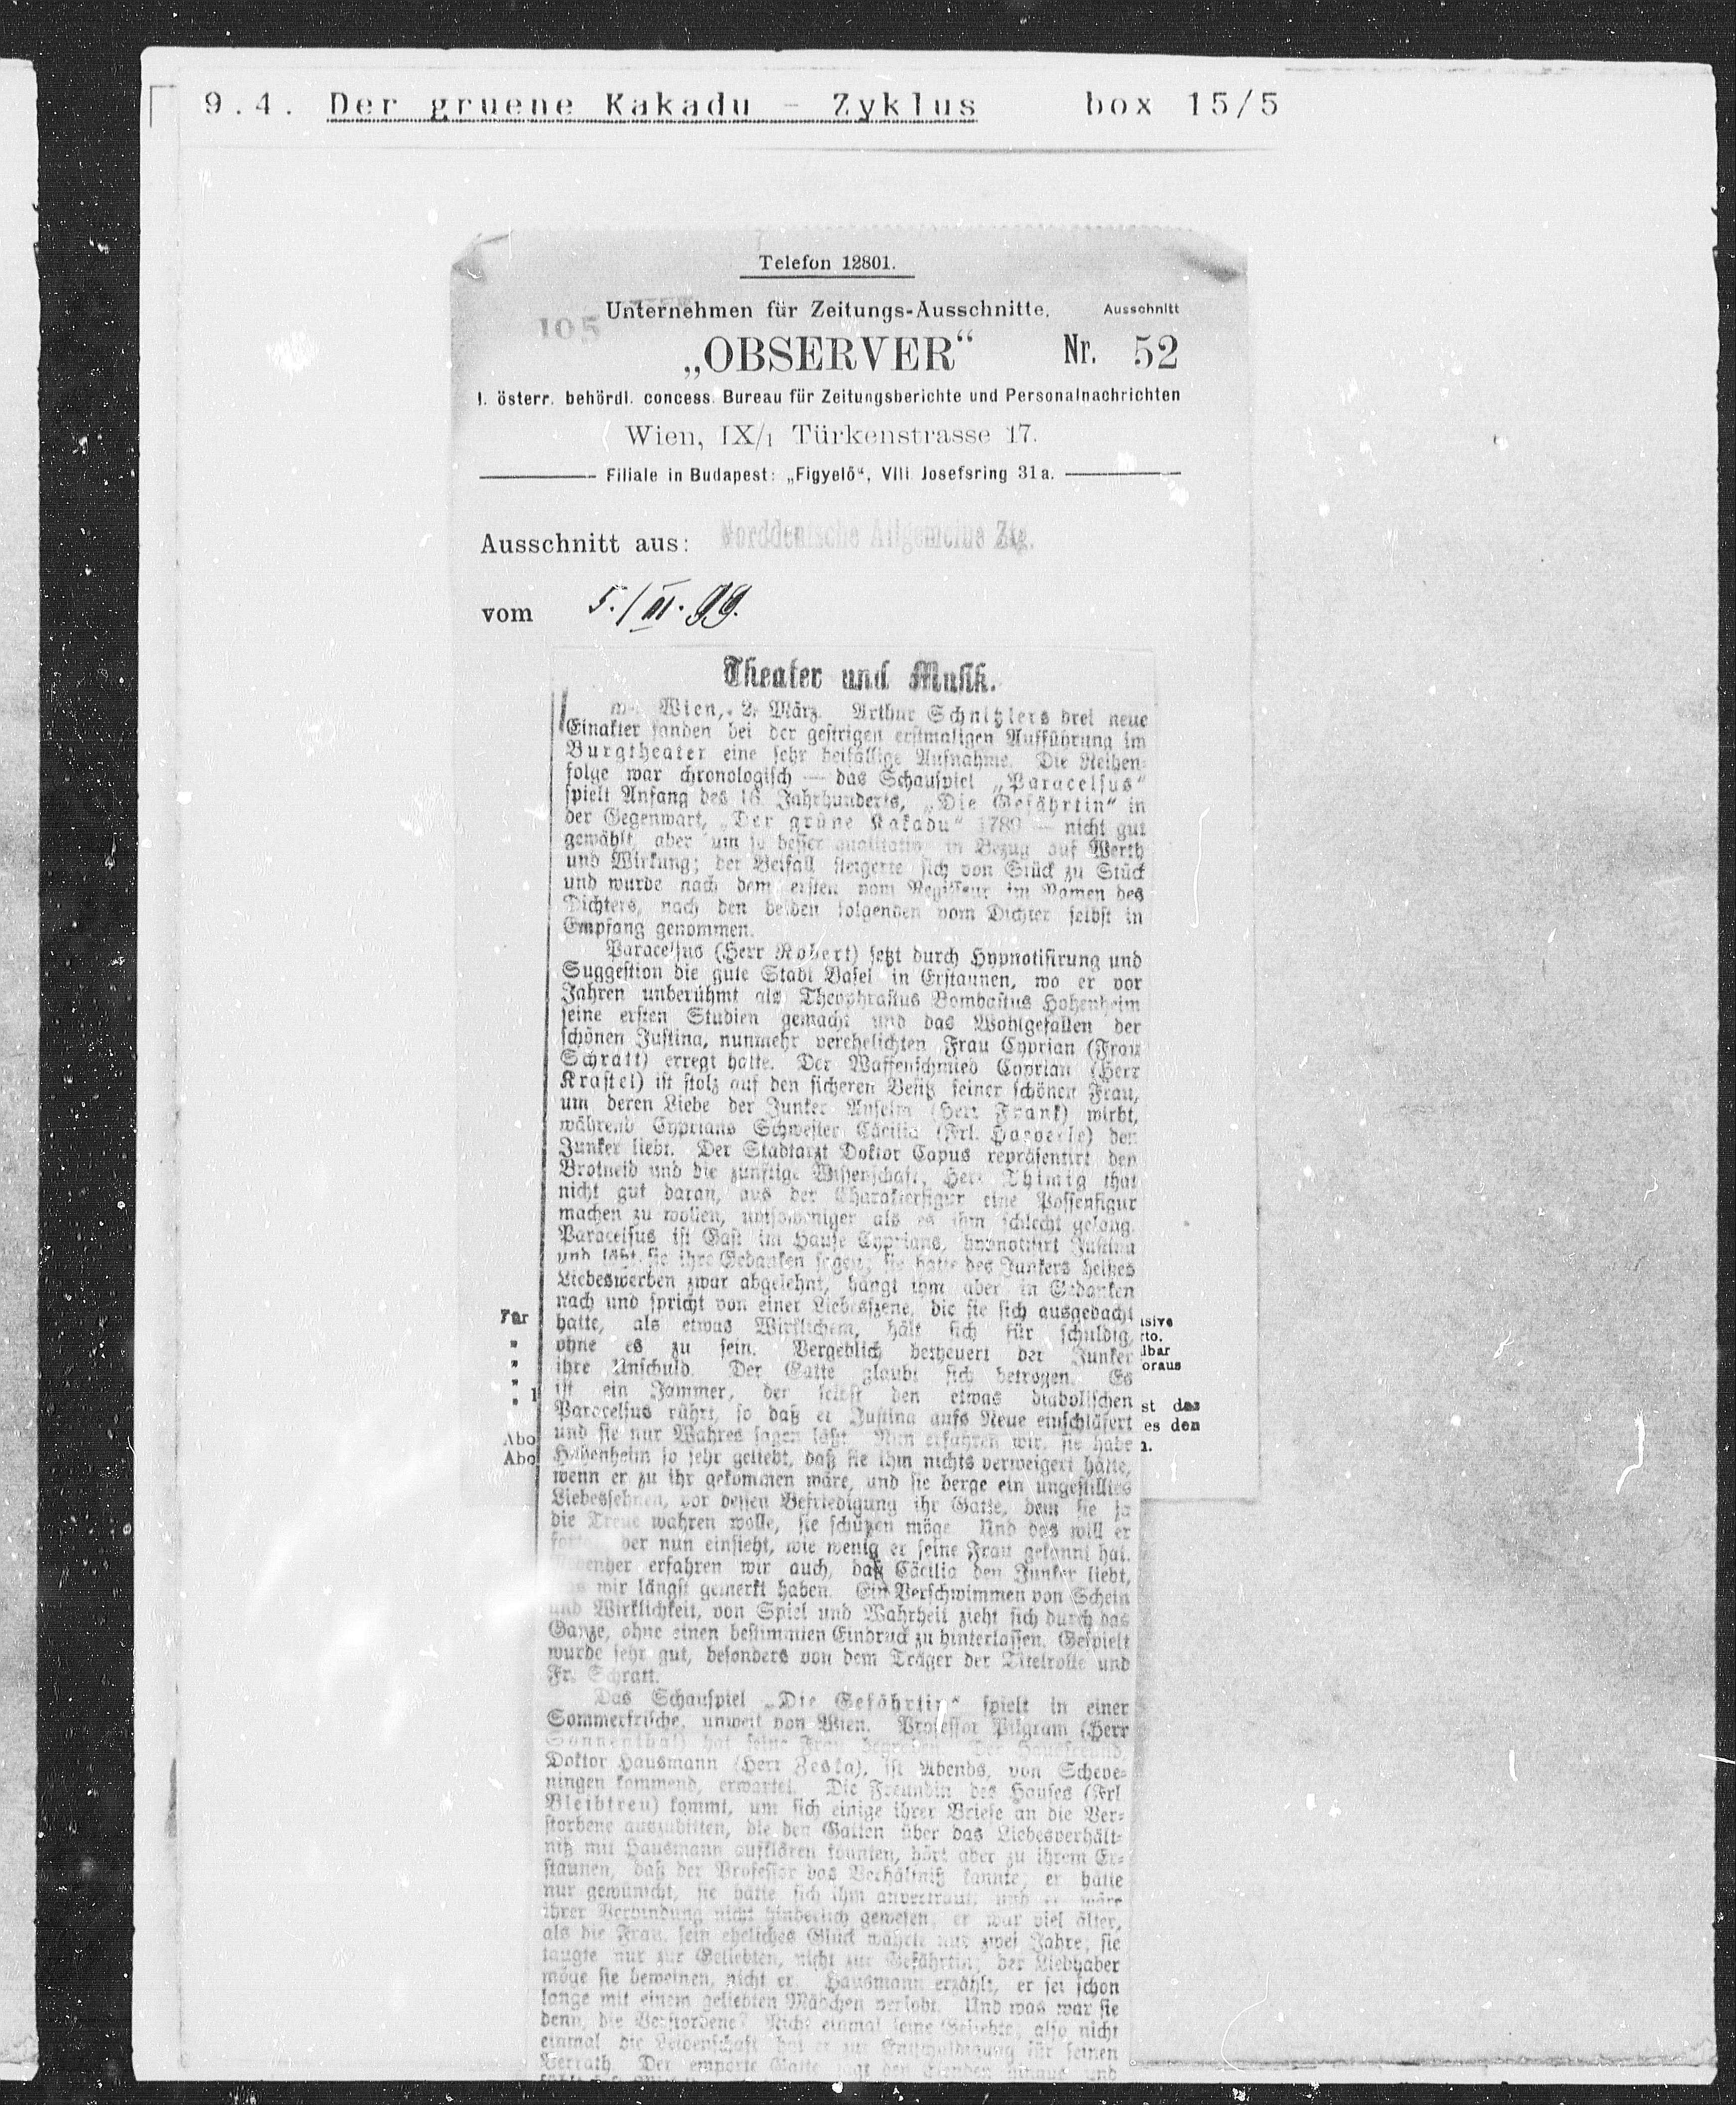 9.4. Der gruene Kakadu - Zyklus box 15/5
Telefon 12801.
105
Unternehmen für Zeitungs-Ausschnitte, Ausschnitt
„OBSERVER“ Nr. 52
I. österr. behördl. concess. Bureau für Zeitungsberichte und Personalnachrichten
Wien, IX/1 Türkenstrasse 17.
Filiale in Budapest: „Figyelő“, VIII. Josefsring 31a.
Ausschnitt aus: Norddeutsche Allgemeine Ztg.
vom 5./III. 99.
Theater und Musik.
Wien, 2. März. Arthur Schnitzlers drei neue
Einakter fanden bei der gestrigen erstmaligen Aufführung im
Burgtheater eine sehr beifällige Aufnahme. Die Reihen-
folge war chronologisch — das Schauspiel „Paracelsus“
spielt Anfang des 16. Jahrhunderts, „Die Gefährtin“ in
der Gegenwart, „Der grüne Kakadu“ 1789 — nicht gut
gewählt, aber um so besser qualitativ in Bezug auf Werth
und Wirkung; der Beifall steigerte sich von Stück zu Stück
und wurde nach dem ersten vom Regisseur im Namen des
Dichters, nach den beiden folgenden vom Dichter selbst in
Empfang genommen.
Paracelsus (Herr Robert) setzt durch Hypnotisirung und
Suggestion die gute Stadt Basel in Erstaunen, wo er vor
Jahren unberühmt als Theophrastus Bombastus Hohenheim
seine ersten Studien gemacht und das Wohlgefallen der
schönen Justina, nunmehr verehelichten Frau Cyprian (Frau
Schratt) erregt hatte. Der Waffenschmied Cyprian (Herr
Krastel) ist stolz auf den sicheren Besitz seiner schönen Frau,
um deren Liebe der Junker Anselm (Herr Frank) wirbt,
während Cyprians Schwester Cäcilia (Frl. Haeberle) den
Junker liebt. Der Stadtarzt Doktor Copus repräsentirt den
Brotneid und die zünftige Wissenschaft, Herr Thimig that
nicht gut daran, aus der Charakterfigur eine Possenfigur
machen zu wollen, umsoweniger als es ihm schlecht gelang.
Paracelsus ist Gast im Hause Cyprians, hypnotisirt Justina
und läßt sie ihre Gedanken sagen; sie hatte des Junkers heißes
Liebeswerben zwar abgelehnt, hängt ihm aber in Gedanken
nach und spricht von einer Liebesszene, die sie sich ausgedacht
hatte, als etwas Wirklichem, hält sich für schuldig,
ohne es zu sein. Vergeblich betheuert der Junker
ihre Unschuld. Der Gatte glaubt sich betrogen. Es
ist ein Jammer, der selbst den etwas diabolischen
Paracelsus rührt, so daß er Justina aufs Neue einschläfert
und sie nur Wahres sagen läßt. Nun erfahren wir, sie habe
Hohenheim so sehr geliebt, daß sie ihm nichts verweigert hätte,
wenn er zu ihr gekommen wäre, und sie berge ein ungestilltes
Liebessehnen, vor dessen Befriedigung ihr Gatte, dem sie ja
die Treue wahren wolle, sie schützen möge. Und das will er
der nun einsieht, wie wenig er seine Frau gekannt hat.
Nebenher erfahren wir auch, daß Cäcilia den Junker liebt,
was wir längst gemerkt haben. Ein Verschwimmen von Schein
und Wirklichkeit, von Spiel und Wahrheit zieht sich durch das
Ganze, ohne einen bestimmten Eindruck zu hinterlassen. Gespielt
wurde sehr gut, besonders von dem Träger der Titelrolle und
Fr. Schratt.
Das Schauspiel „Die Gefährtin“ spielt in einer
Sommerfrische, unweit von Wien. Professor Pilgram (Herr
Sonnenthal) hat seine Frau begraben. Der Hausfreund,
Doktor Hausmann (Herr Zeska), ist Abends, von Scheve-
ningen kommend, erwartet. Die Freundin des Hauses (Frl.
Bleibtreu) kommt, um sich einige ihrer Briefe an die Ver-
storbene auszubitten, die den Gatten über das Liebesverhält-
niß mit Hausmann aufklären könnten, hört aber zu ihrem Er-
staunen, daß der Professor das Verhältniß kannte; er hätte
nur gewünscht, sie hätte sich ihm anvertraut, und er wäre
ihrer Verbindung nicht hinderlich gewesen; er war viel älter,
als die Frau, sein eheliches Glück währte nur zwei Jahre, sie
taugte nur zur Geliebten, nicht zur Gefährtin; der Liebhaber
möge sie beweinen, nicht er. Hausmann erzählt, er sei schon
lange mit einem geliebten Mädchen verlobt. Und was war sie
denn, die Verstorbene? Nicht einmal seine Geliebte, also nicht
einmal die Leidenschaft hat er zur Entschuldigung für seinen
Verrath. Der empörte Gatte jagt den Elenden hinaus und
Für
Abo
Abo
oraus
st das
es den